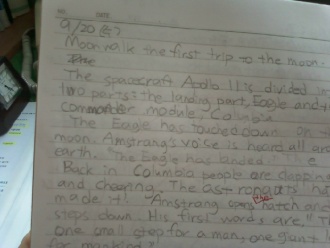 NO. DATE
9/20
Moonwalk the first trip to the moon.
The spacecraft Apollo 11 is divided in
two parts: the landing part, Eagle and t
Commander module, Columbia
The Eagle has touched down on
moon. Amstrang's voice is heard all aro
earth. "The Eagle has landed.
Back in Columbia people are clapping
and cheering. The astronauts ha
made it! Amstrang opens hatch an
steps down. His first words are, "T
one small step for a man, one giant l
for mankind."